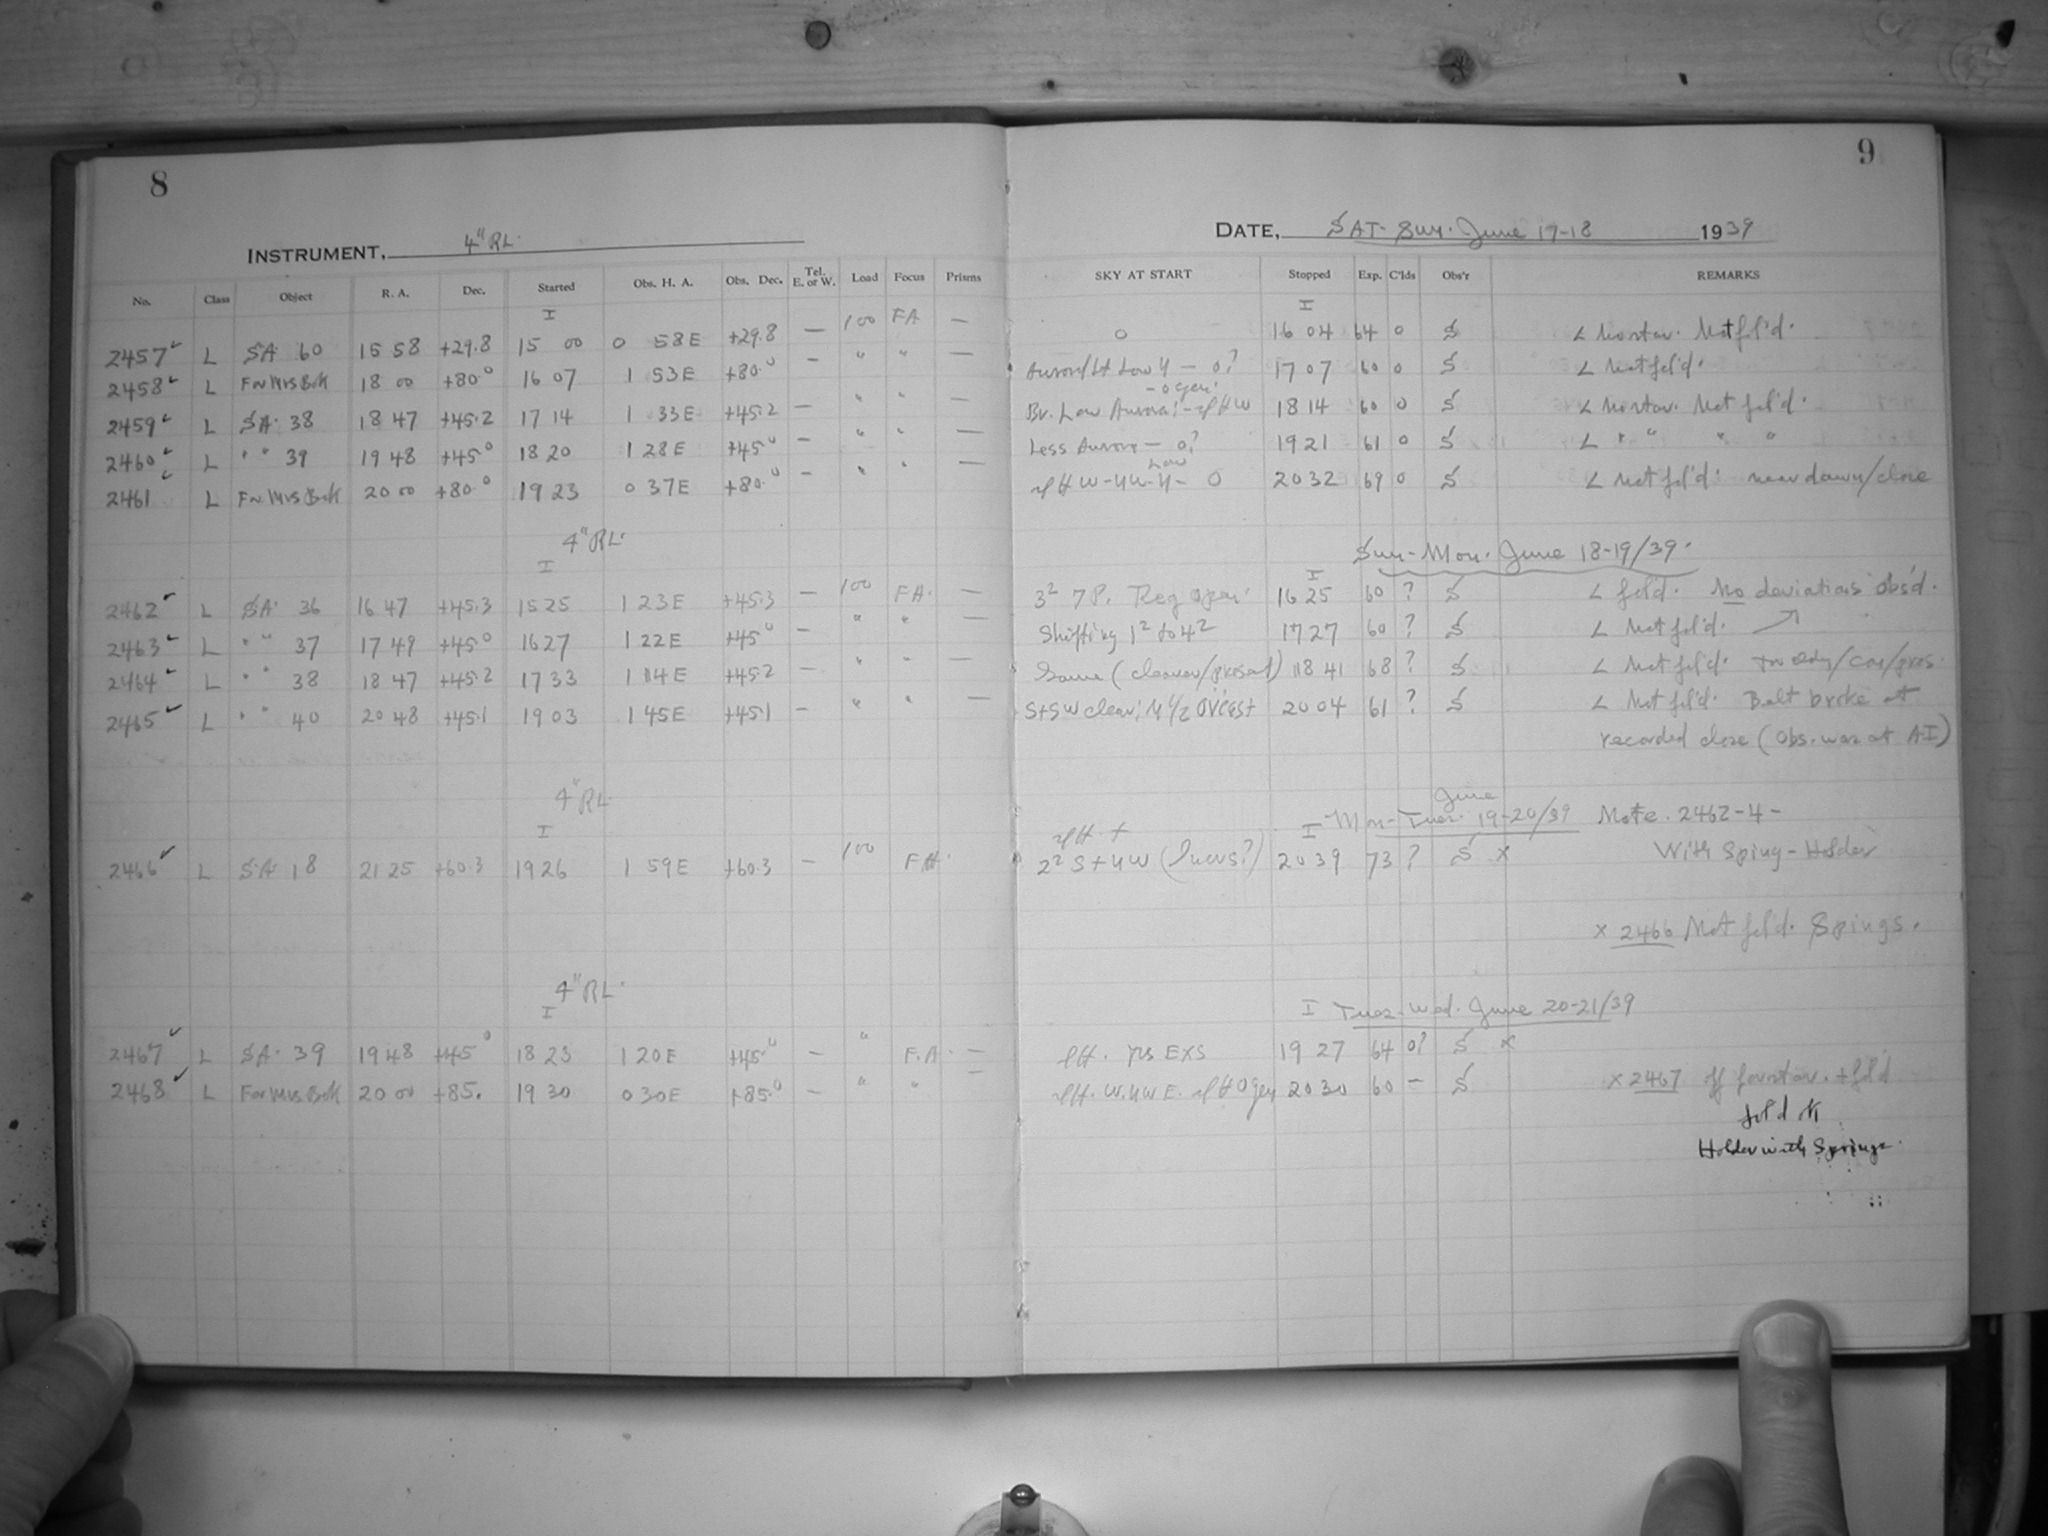 8
INSTRUMENT, 4" RL.
No. Class Object R. A. Dec. Started Obs. H. A. Obs. Dec. Tel. E. or W. Load Focus Prisms
I
2457 L SA 60 15 58 +29.8 15 00 0 58E +29.8 — 100 FA —
2458 L For Mrs Bok 18 00 +80.0 16 07 1 53E +80.0 — " " —
2459 L SA. 38 18 47 +45.2 17 14 1 33E +45.2 — " " —
2460 L " " 39 19 48 +45.0 18 20 1 28E +45.0 — " " —
2461 L For Mrs Bok 20 00 +80.0 19 23 0 37E +80.0 — " " —
4" RL.
I
2462 L SA. 36 16 47 +45.3 15 25 1 23E +45.3 — 100 FA. —
2463 L " " 37 17 49 +45.0 16 27 1 22E +45.0 — " " —
2464 L " " 38 18 47 +45.2 17 33 1 14E +45.2 " " —
2465 L " " 40 20 48 +45.1 19 03 1 45E +45.1 — " " —
4" RL
I
2466 L SA. 18 21 25 +60.3 19 26 1 59E +60.3 — 100 FA.
4" RL.
I
2467 L SA. 39 19 48 +45.0 18 23 1 20E +45.0 — " F.A. —
2468 L For Mrs Bok 20 00 +85. 19 30 0 30E +85.0 — " " —
9
DATE, SAT-Sun. June 17-18 1939
SKY AT START Stopped Exp. C'lds Obs'r REMARKS
I
0 16 04 64 0 S L Not fol'd.
Low — 0? 17 07 60 0 S L Not fol'd.
Br. Low Aurora 18 14 60 0 S L Not fol'd.
Less Aurora — 0? 19 21 61 0 S L " " " "
Low
0 20 32 69 0 S L Not fol'd. near dawn/close
Sun-Mon. June 18-19/39.
I
3² 7P. Reg open. 16 25 60 ? S L fol'd. No deviations obs'd.
Shifting 1² to 4² 17 27 60 ? S L Not fol'd.
Same (clearer/present) 18 41 68 ? S L Not fol'd.
S+SW clear; N 1/2 ovcest 20 04 61 ? S L Not fol'd. Belt broke at
recorded close (Obs. was at AI)
June
I Mon-Tues. 19-20/39 Note. 2462-4-
2² S+NW 20 39 73 ? S x With Spring-Holder
x 2466 Not fol'd. Springs.
I Tues-Wed. June 20-21/39
EXS 19 27 64 0? S x
20 30 60 — S x 2467 + fol'd
fol'd
Holder with Springs.